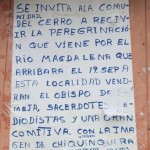 SE INVITA ALA COMU
NIDAD
DEL CERRO A RECIV
IR LA PEREGRINACIÓ
N QUE VIENE POR EL
RÍO MAGDALENA QUE
ARRIBARA EL 19 SEP. A
ESTA LOCALIDAD VEND
RAN EL OBISPO DE
MEJA, SACERDOTES
EDIODISTAS Y UNA GRAN
COMITIVA. CON LA IMA
GEN DE CHIQUINQUIRA